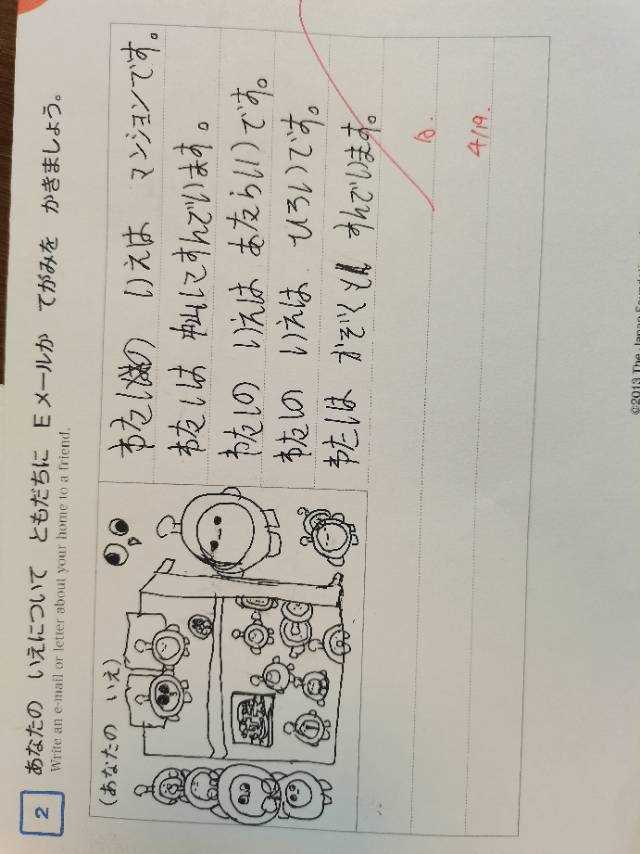 2
あなたの いえについて ともだちに Eメールか てがみを かきましょう。
Write an e-mail or letter about your home to a friend.
(あなたの いえ)
わたしの いえは マンションです。
わたしは すんでいます。
わたしの いえは あたらしいです。
わたしの いえは ひろいです。
わたしは かぞくと すんでいます。
4/19.
©2013 The Japan